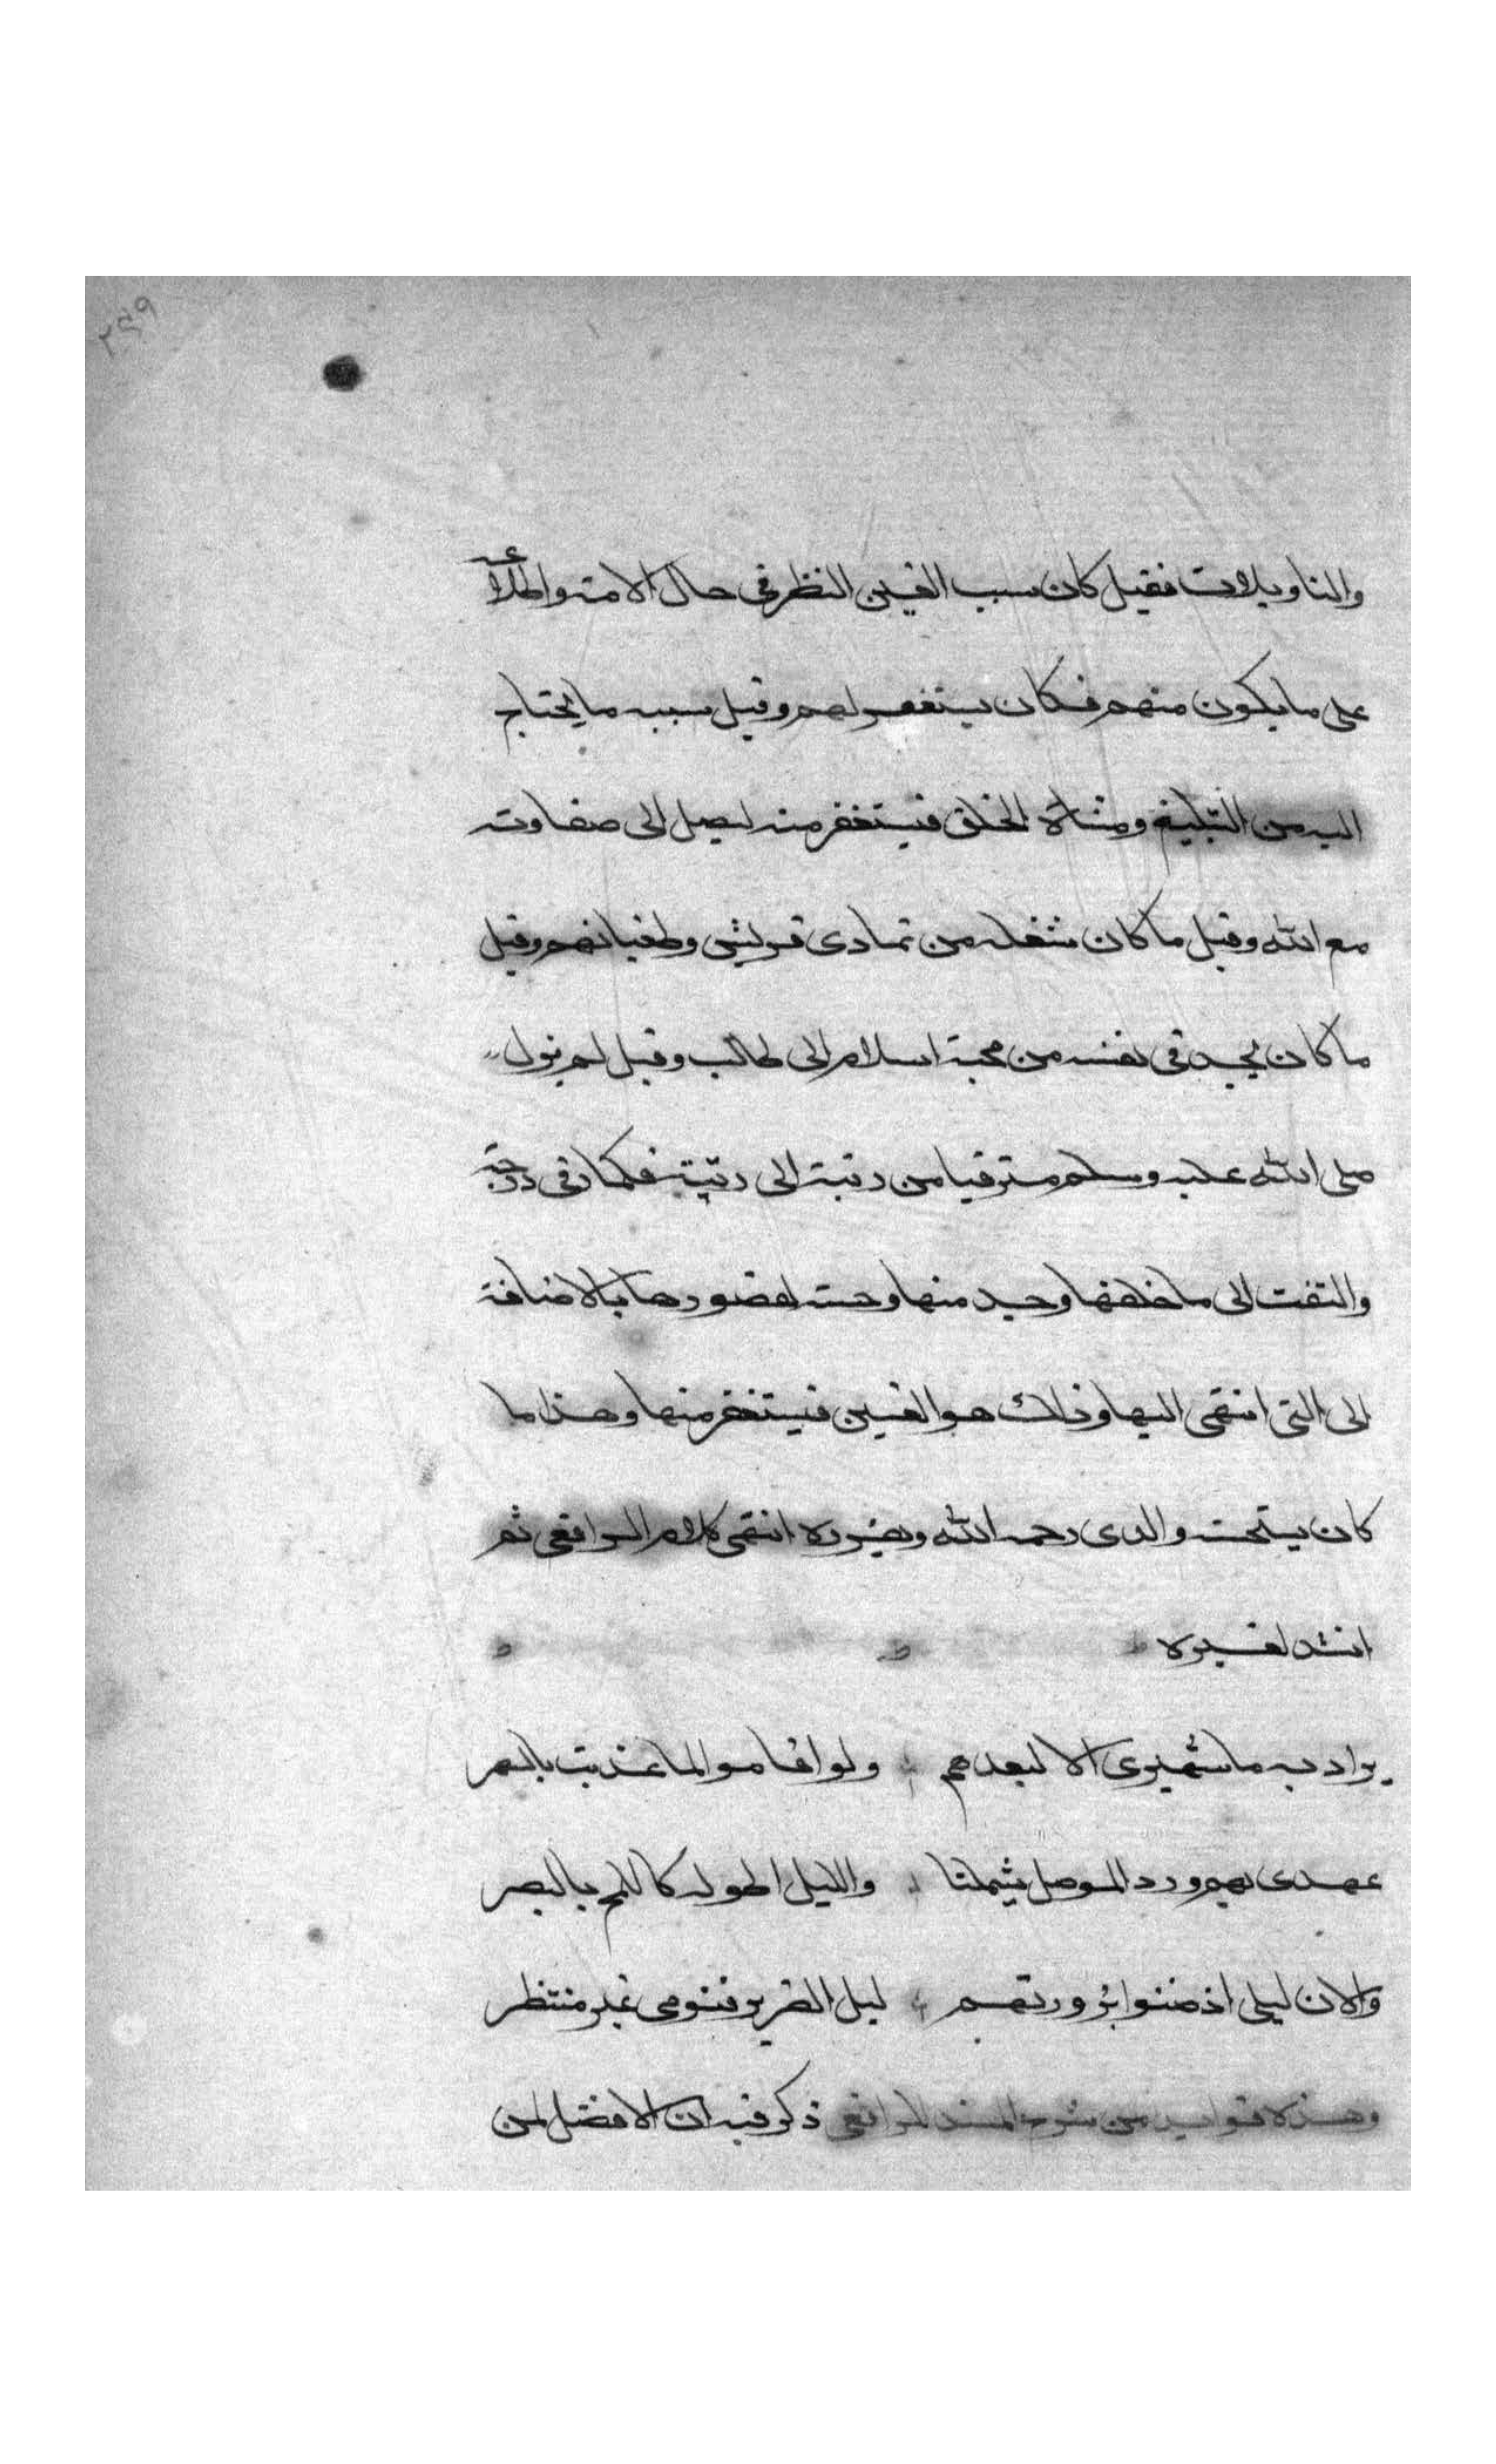 ٢٤٩
والتاويلات فقيل كان سبب الغين النظر في حال الامة واطلاعه
على ما يكون منهم فكان يستغفر لهم وقيل سببه ما يحتاج
اليه من التبليغ ومشاهدة الخلق فيستغفر منه ليصل الى صفا وقته
مع الله وقيل ما كان شغله من تمادى قريش وطغيانهم وقيل
ما كان يجد في نفسه من محبة اسلام ابى طالب وقيل لم يزل
صلى الله عليه وسلم مترقيا من رتبة الى رتبة فكلما رقى درجة
والتفت الى ما خلفها وجد منها وحشة لقصورها بالاضافة
الى التى انتهى اليها وذلك هو الغين فيستغفر منها وهذا ما
كان يستحسنه والدى رحمه الله ويقرره انتهى كلام الرافعى ثم
انشد لغيره
ما سهرى الا لبعدهم ولو اقاموا لما عذبت بالسهر
عهدى بهم ورد الوصل يشملنا والليل اطوله كاللمح بالبصر
والان ليلى اذ ضنوا بزورتهم ليل الضرير فنومى غير منتظر
وهذه فوايد من شرح المسند للرافعى ذكر فيه ان الافضل لمن